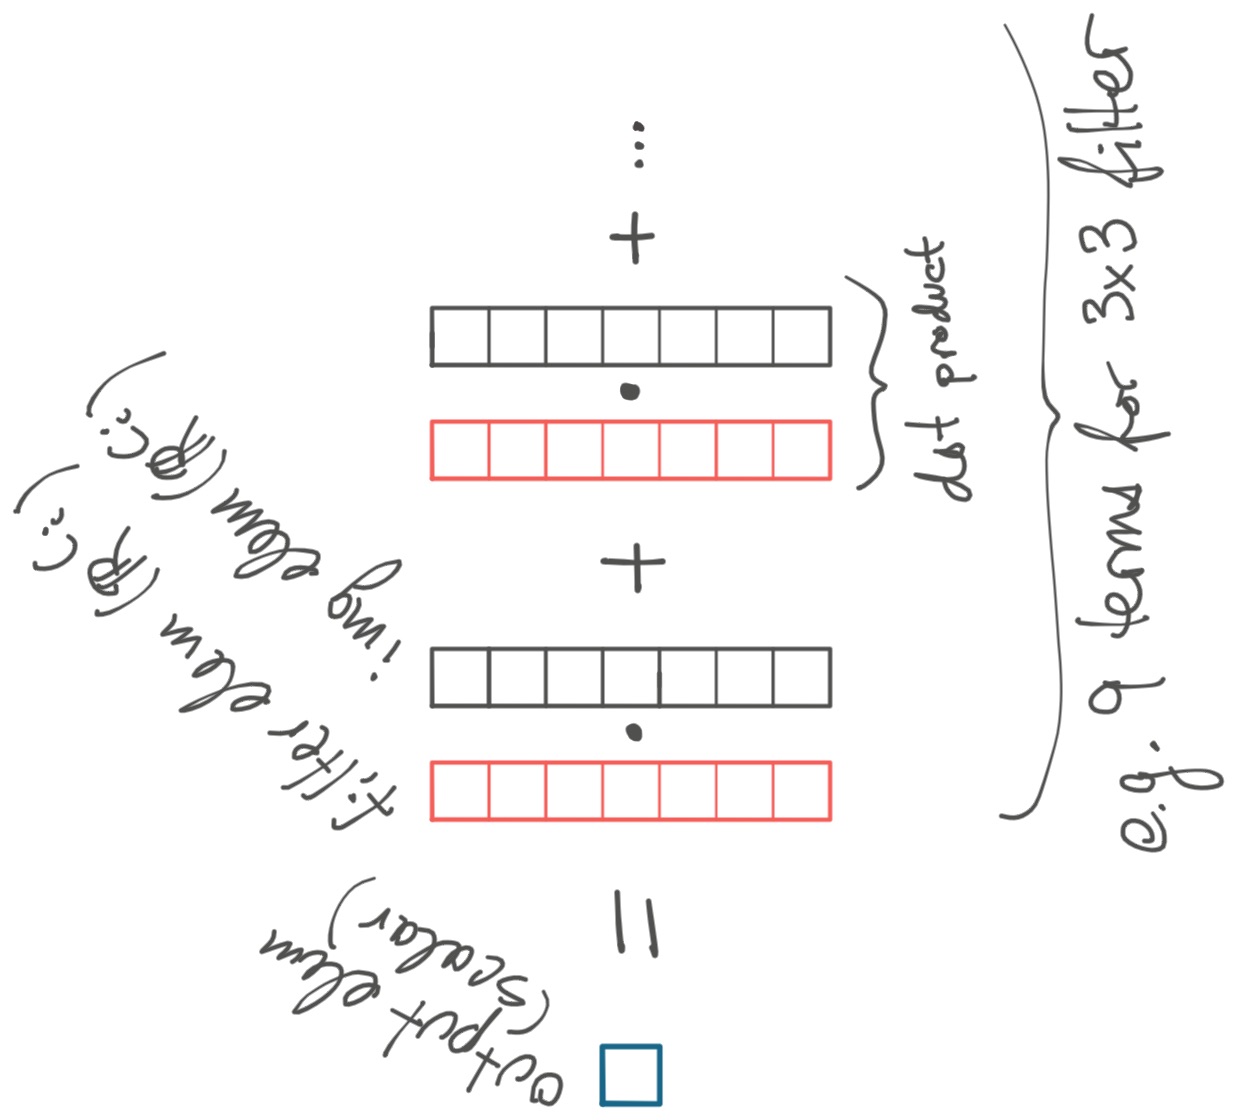 output elem
(scalar)
filter elem (ℝ^Ci)
img elem (ℝ^Ci)
= · + · + ...
dot product
e.g. 9 terms for 3x3 filter